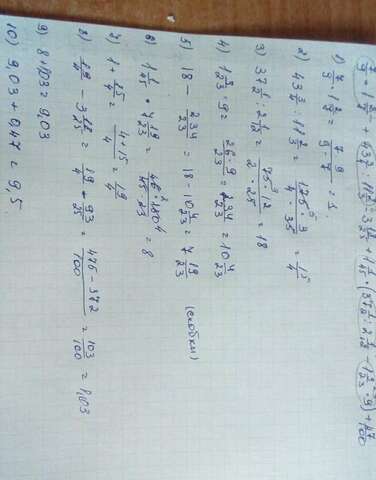 7/9 · 1 2/7 + 43 3/4 : 11 2/3 - 3 18/25 + 1 1/45 · (37 1/2 : 2 1/12 - 1 3/23 · 9) + 47/100
1) 7/9 · 1 2/7 = 7 · 9 / 9 · 7 = 1.
2) 43 3/4 : 11 2/3 = 175 · 3 / 4 · 35 = 15/4
3) 37 1/2 : 2 1/12 = 75 · 12 / 2 · 25 = 18
4) 1 3/23 · 9 = 26 · 9 / 23 = 234/23 = 10 4/23
5) 18 - 234/23 = 18 - 10 4/23 = 7 19/23 (скобки)
6) 1 1/45 · 7 19/23 = 46 · 180 / 45 · 23 = 8
7) 1 + 15/4 = 4+15 / 4 = 19/4
8) 19/4 - 3 18/25 = 19/4 + 93/25 = 475-372 / 100 = 103/100 = 1,03
9) 8+1,03 = 9,03
10) 9,03 + 0,47 = 9,5.